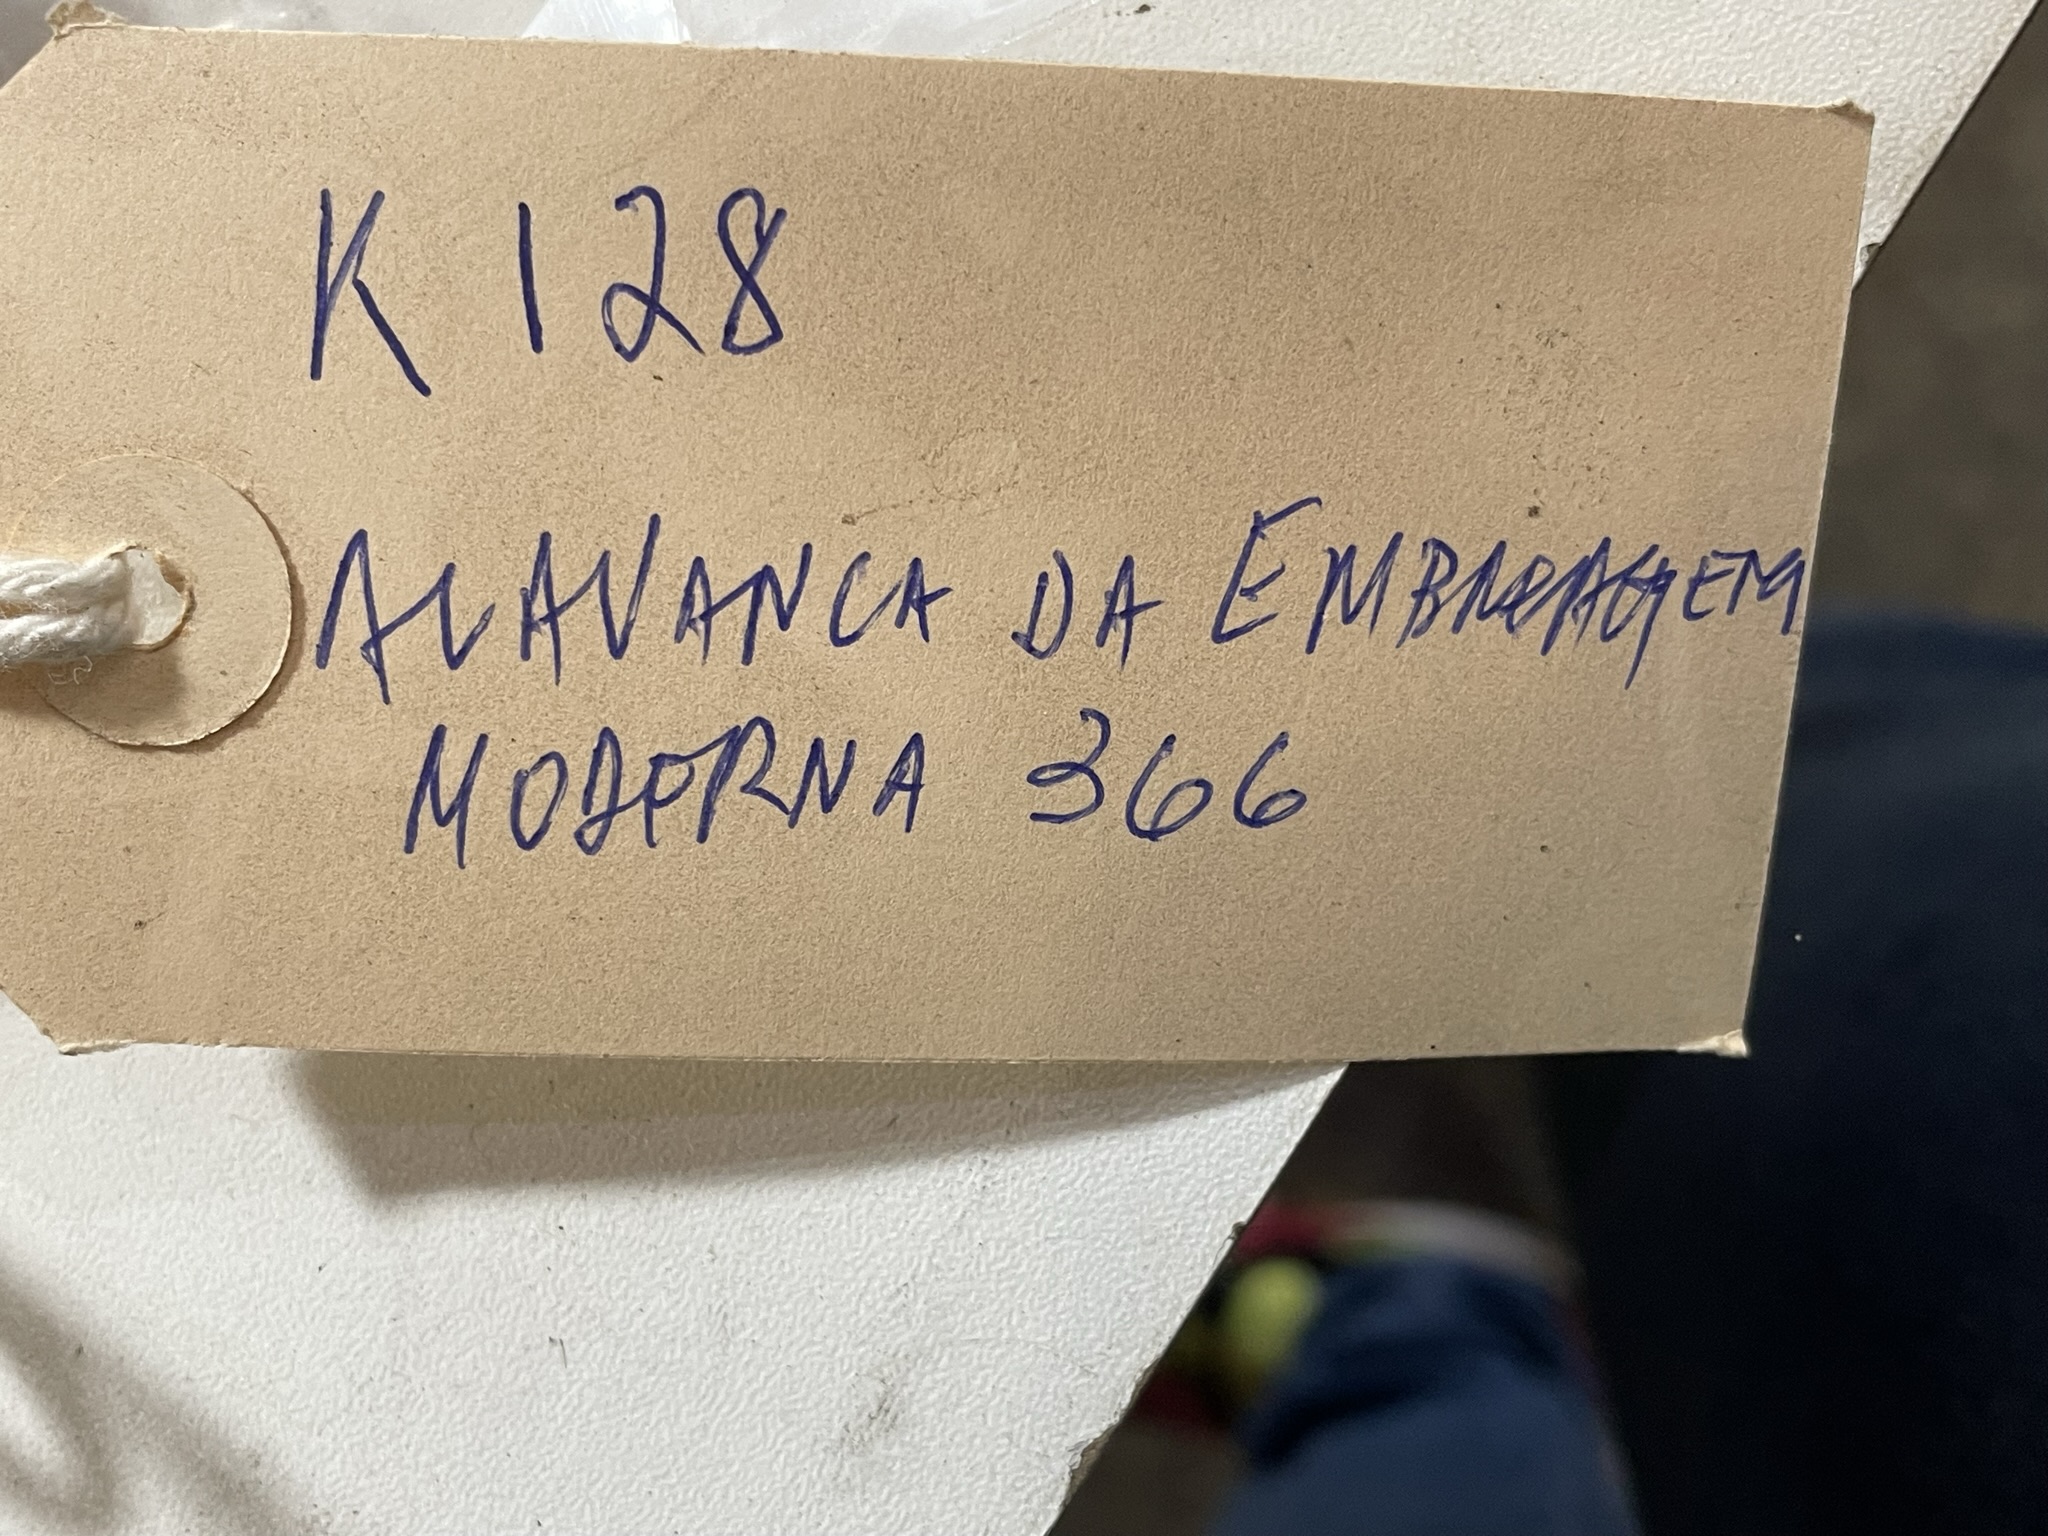 K 128
ALAVANCA DA EMBRAAGEM
MODERNA 366